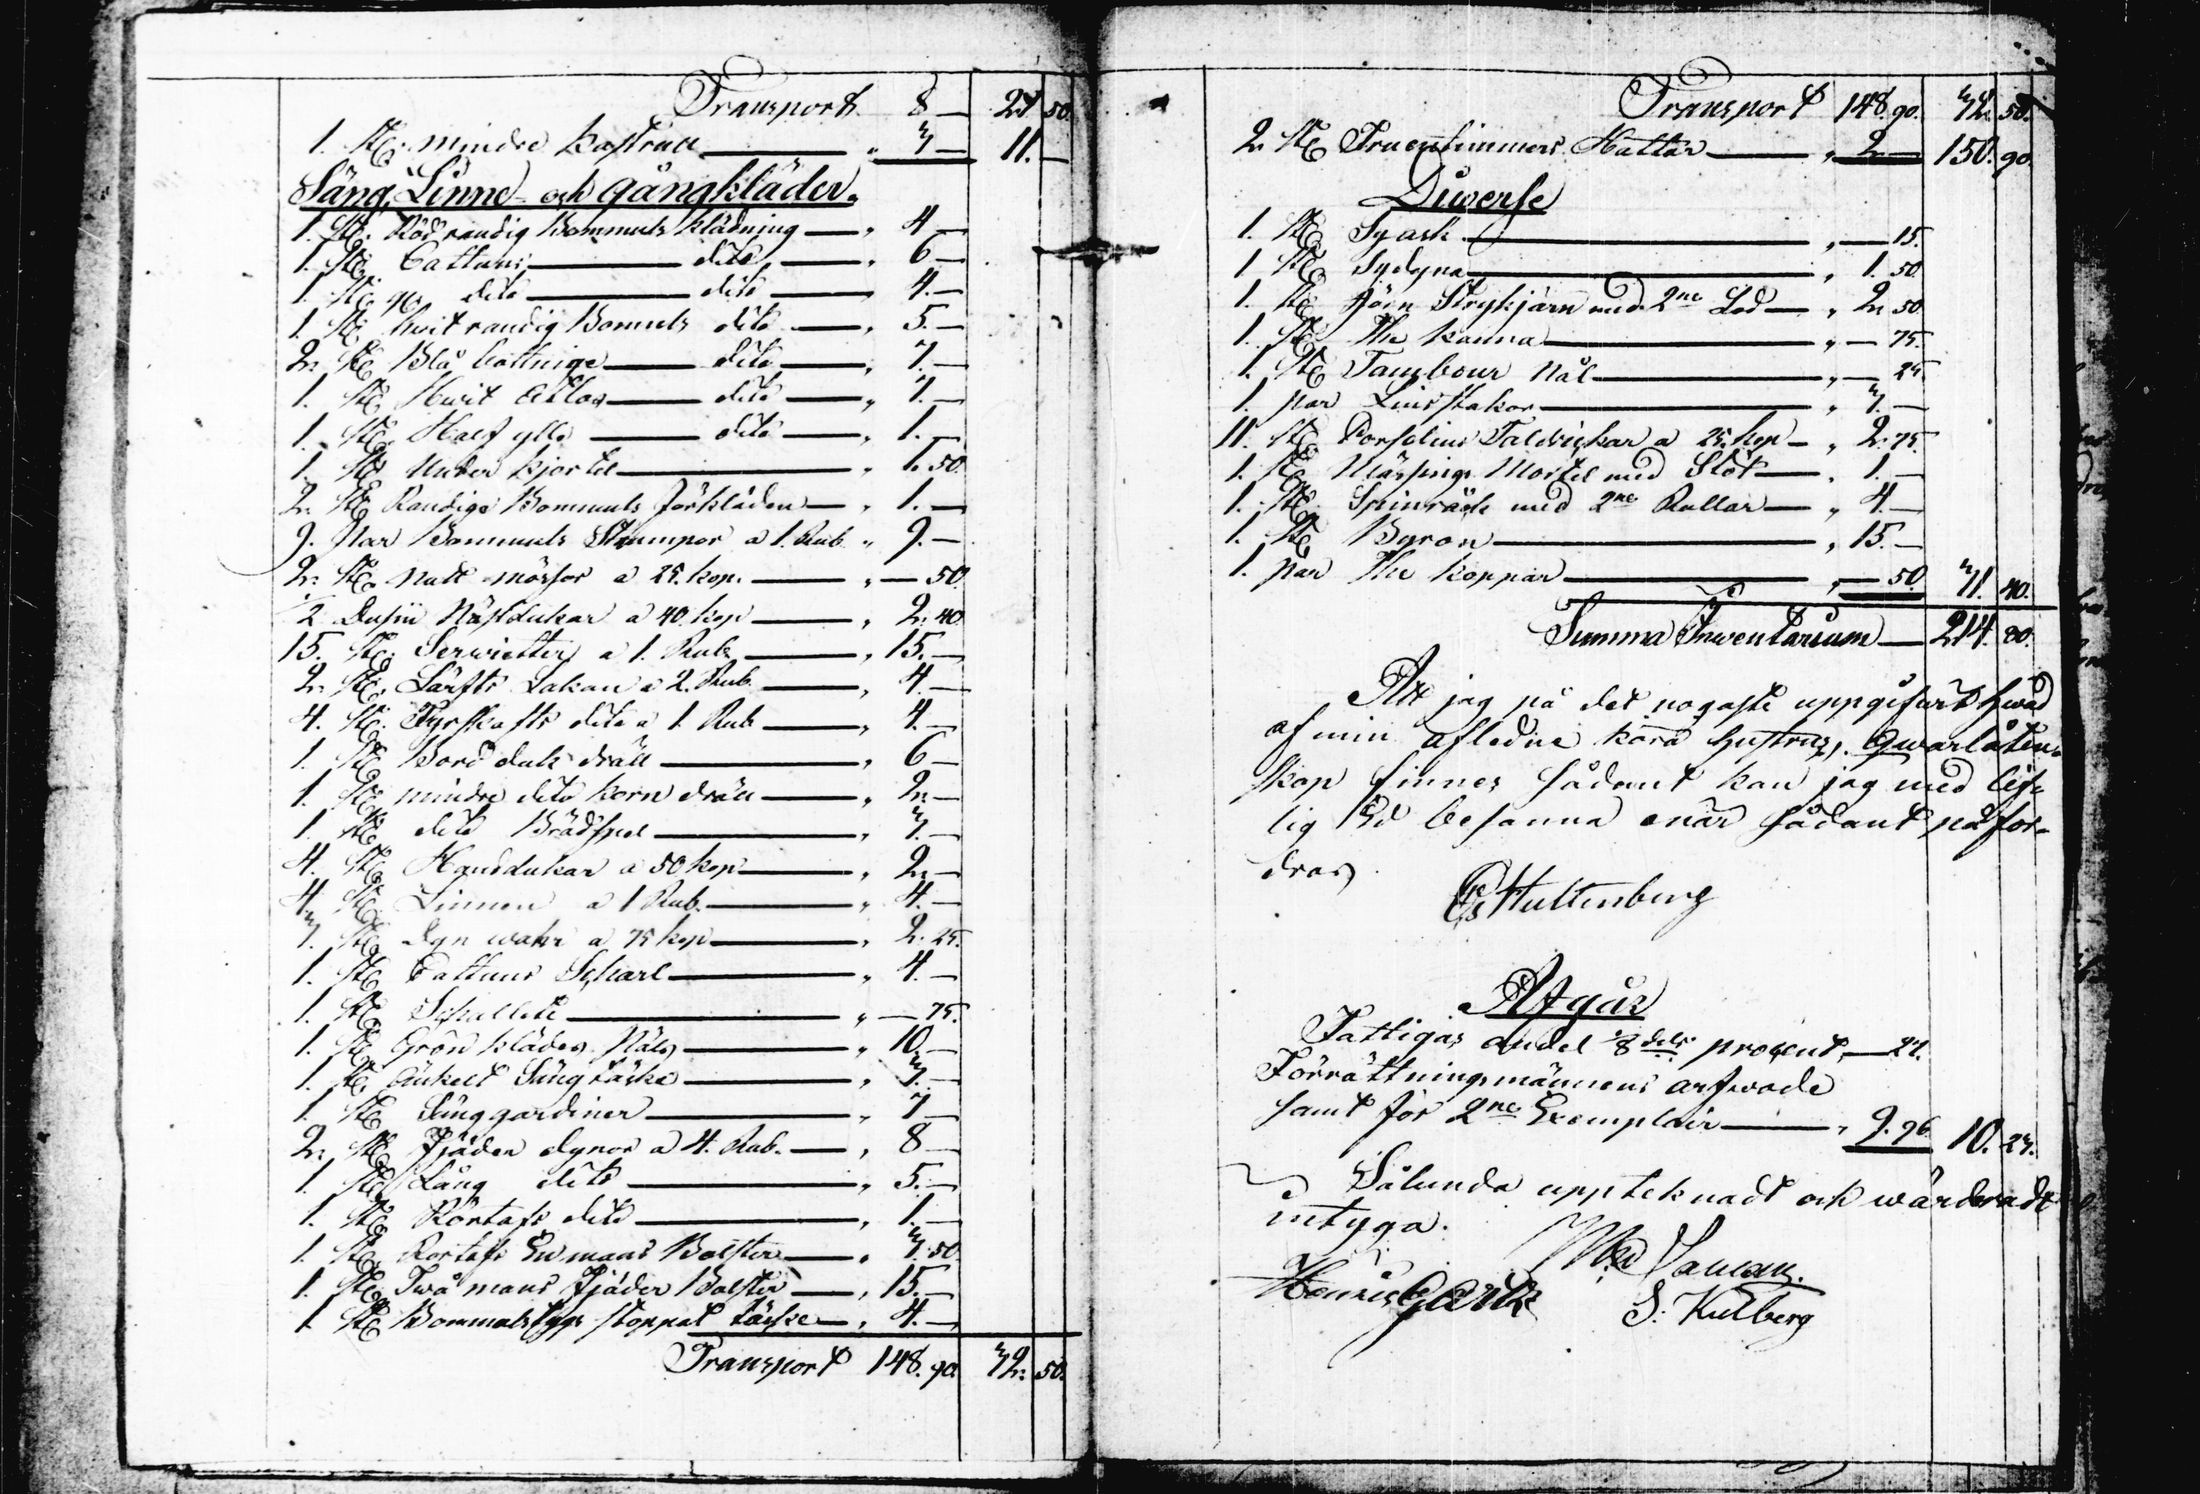 Transport 8 — 21 50
1. st. mindre kastrull — " 3 — 11. —
Säng, Linne- och gångkläder.
1. st. Röd randig Bommuls klädning — " 4 —
1. st. Cattuns — dito — " 6 —
1. st. dito — dito — " 4. —
1. st. hvit randig Bomuls dito — " 5. —
2. st. Blå Cattuige — dito — " 7. —
1. st. Hwit Atlas — dito — " 7. —
1. st. Half ylle — dito — " 1. —
1. st. Under kjortel — " 1. 50.
2. st. Randiga Bommuls förkläden — " 1. —
9. Par Bommuls Strumpor a 1. Rub. " 9. —
2. st. natt mössor a 25. kop. — " — 50.
1/2 Dusin Näsdukar a 40. kop — " 2. 40.
15. st. Servietter a 1. Rub. — " 15. —
2. st. Lärfts Lakan a 2. Rub. — " 4. —
4. st. Fyrskafts dito a 1. Rub — " 4. —
1. st. Bord duk dräll — " 6 —
1. st. mindre dito korn dräll — " 2. —
1. st. dito Brädspel — " 3. —
4. st. Handdukar a 50 kop — " 2. —
4. st. Linnen a 1 Rub. — " 4. —
3. st. dyn watir a 75 kop — " 2. 25.
1. st. Cattuns Scharl — " 4. —
1. st. Schallete — " — 75.
1. st. Grön klädes Päls — " 10. —
1. st. Änkelt Sängtäcke — " 3. —
1. st. Sänggardiner — " 7 —
2. st. Fjäder dynor a 4. Rub. — " 8 —
1. st. Lång dito — " 5. —
1. st. Rörtafs dito — " 1. —
1. st. Rortafs En mans Bolster — " 3. 50
1. st. Twå mans fjäder Bolster — " 15. —
1 st. Bommulstygs stoppat täcke — " 4. —
Transport 148. 90. 32. 50.
Transport 148. 90. 32. 50.
2 st. Fruentimmers Hattar — " 2 — 150. 90.
Diverse
1. st. Syask — " — 15.
1 st. Sydyna — " 1. 50
1. st. Jörn Strykjärn med 2ne Lod — " 2. 50
1. st. The kanna — " — 75.
1. st. Tambour Nål — " — 25.
1. par Ljusstakar — " 3. —
11. st. Porselins Taldrickar a 25. kop — " 2. 75.
1. st. Mässings Mortel med Stöt — " 1. —
1. st. Spinråck med 2ne Rullar — " 4. —
1. st. Byron — " 15. —
1. par The koppar — " — 50. 31. 40.
Summa Inventarium — 214. 80.
Att jag på det nogaste uppgifwit hwad
af min afledne kära hustrus. Qwarlåten-
skap finnes sådant kan jag med lif-
lig Ed besanna enär sådant påfor-
dras.
Hultenberg
Afgår
Fattigas andel 1/8 dels procent — 27.
Förrättningsmännens arfwode
samt för 2ne Exemplair — " 9. 96 10. 23.
Sålunda uppteknadt och wärderadt
intyga.
Henric Gartz
S: Kulberg